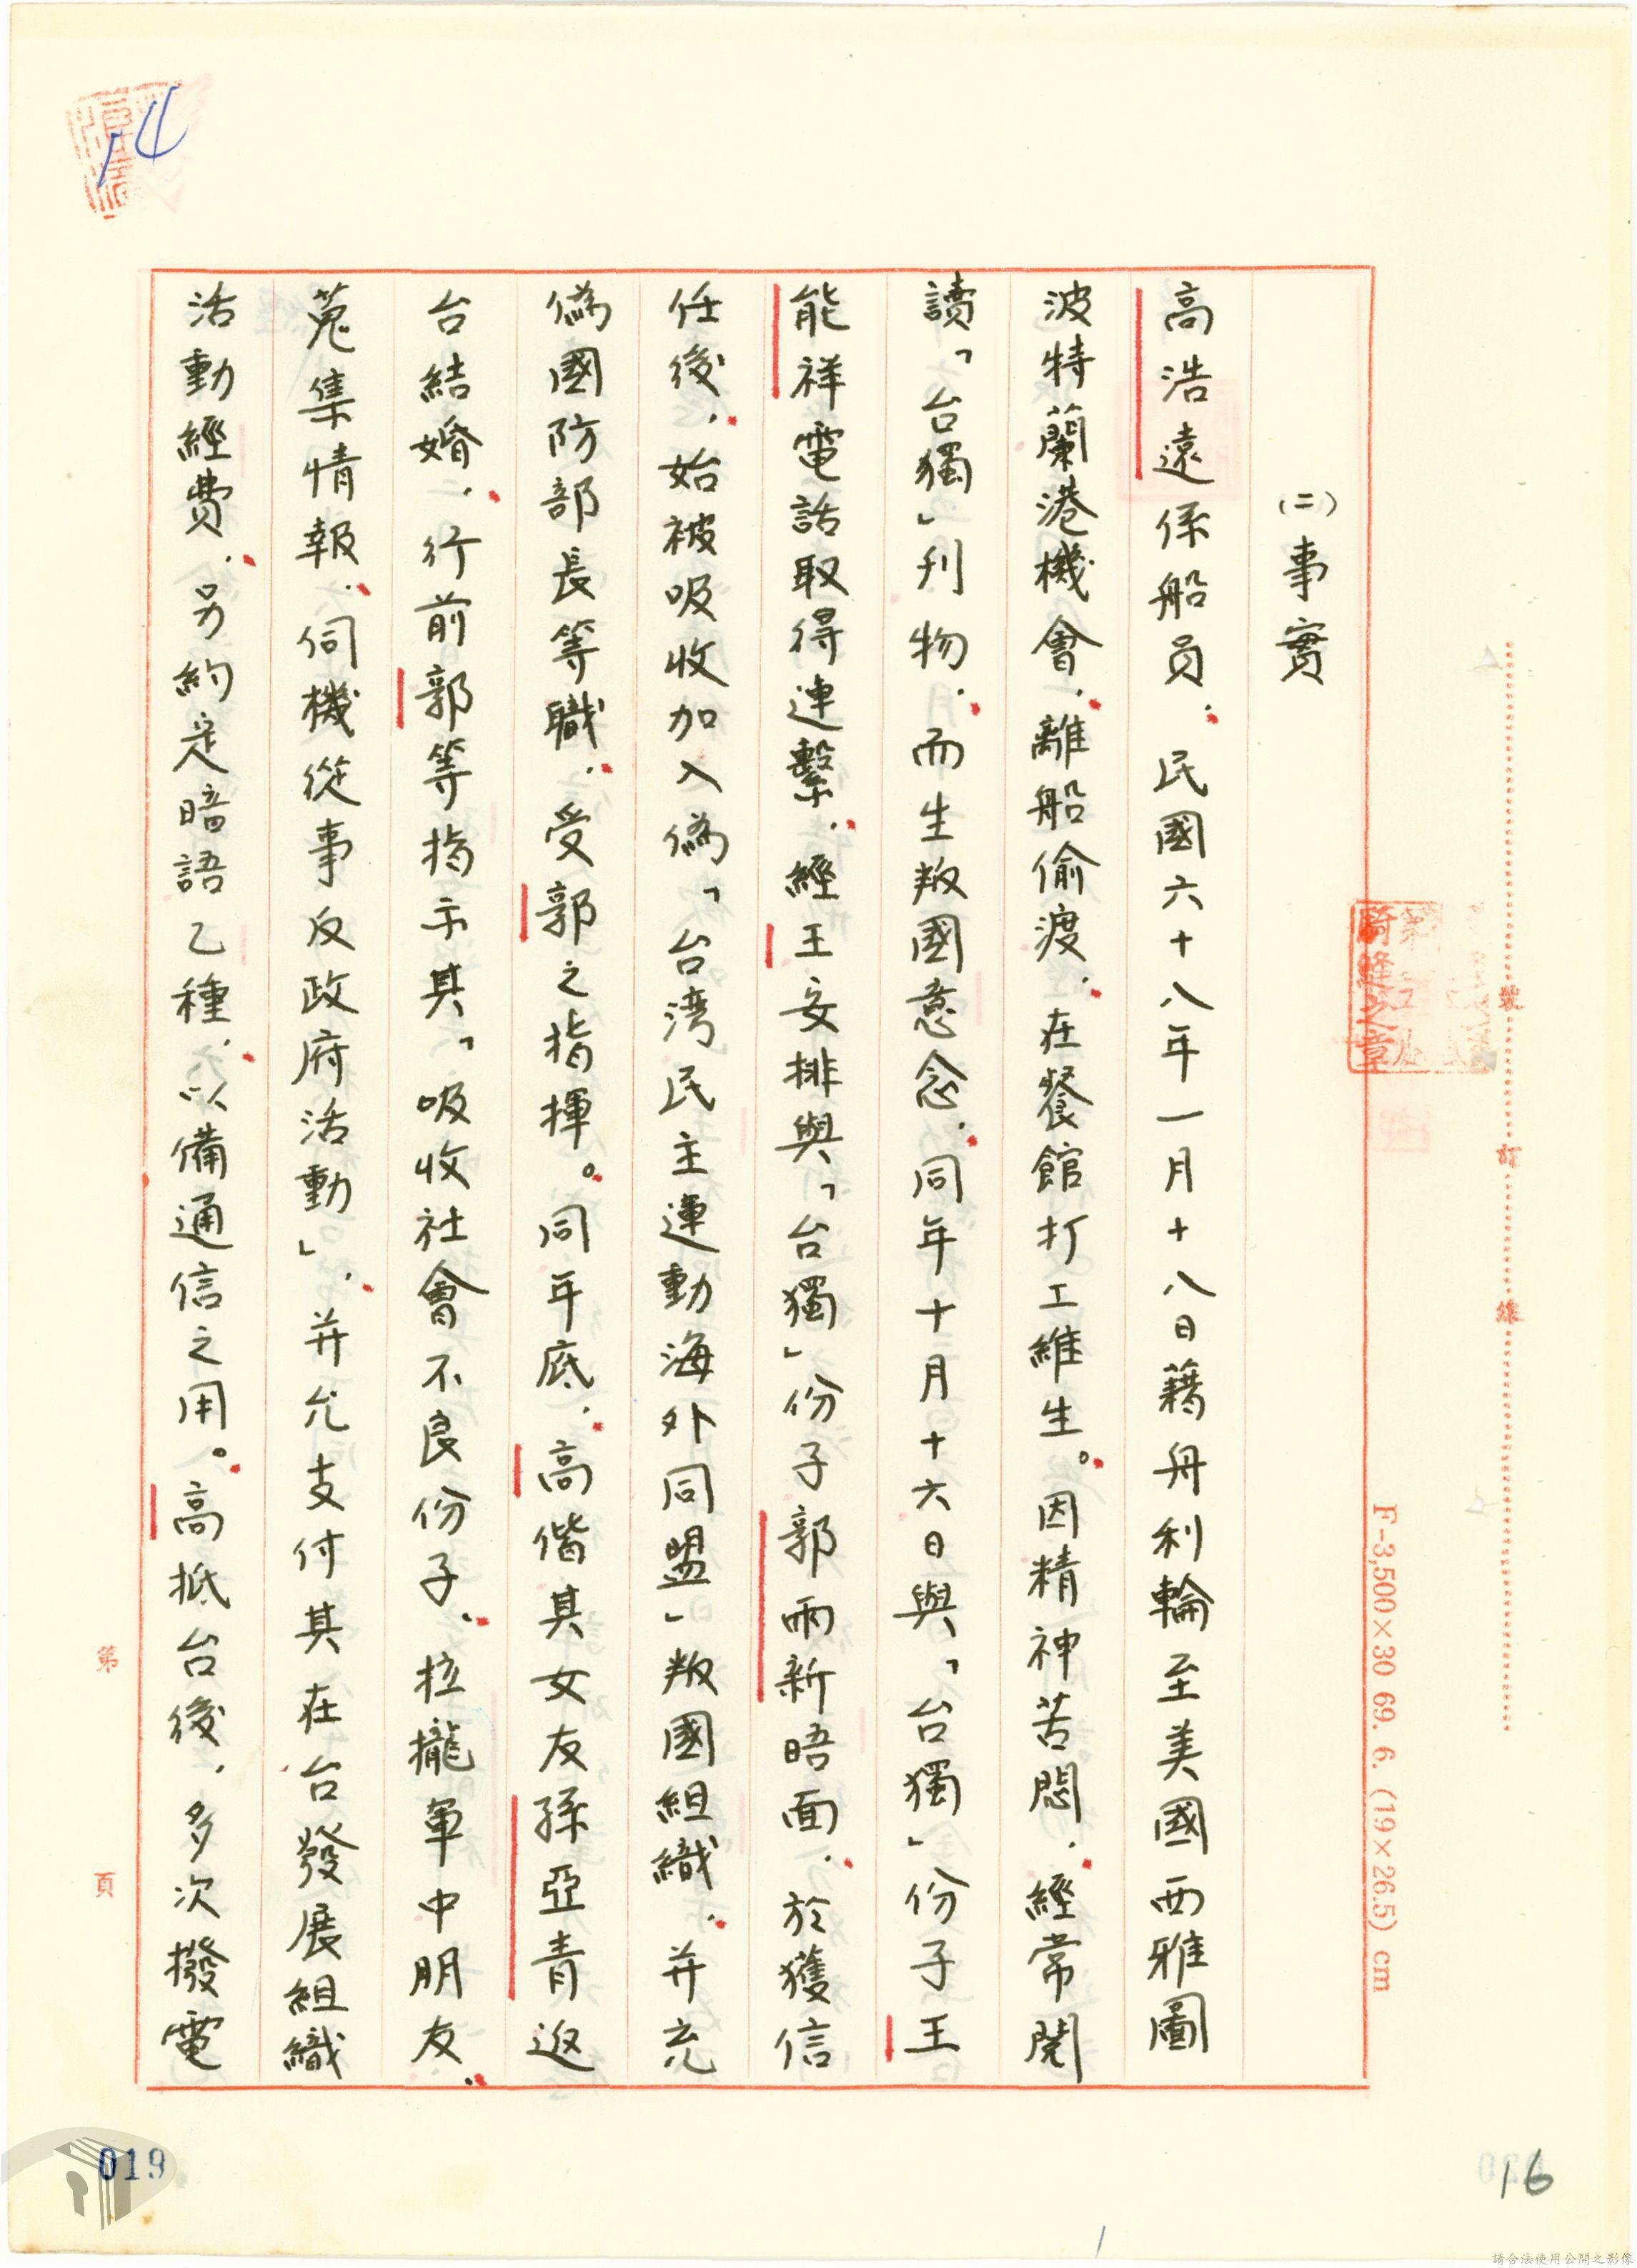 14
㈡事實
高浩遠係船員，民國六十八年一月十八日藉舟利輪至美國西雅圖
波特蘭港機會，離船偷渡，在餐館打工維生。因精神苦悶，經常閱
讀「台獨」刋物，而生叛國意念，同年十月十六日與「台獨」份子王
能祥電話取得連繫，經王安排與「台獨」份子郭雨新晤面，於獲信
任後，始被吸收加入偽「台湾民主運動海外同盟」叛國組織，并充
偽國防部長等職，受郭之指揮。同年底，高偕其女友孫亞青返
台結婚，行前郭等指示其「吸收社會不良份子，拉攏軍中朋友，
蒐集情報，伺機從事反政府活動」，并允支付其在台發展組織
活動經費，另約定暗語乙種，以備通信之用。高抵台後，多次撥電
騎縫之章
號
訂
線
F-3,500×30 69. 6. (19×26.5) cm
第
頁
019
16
請合法使用公開之影像